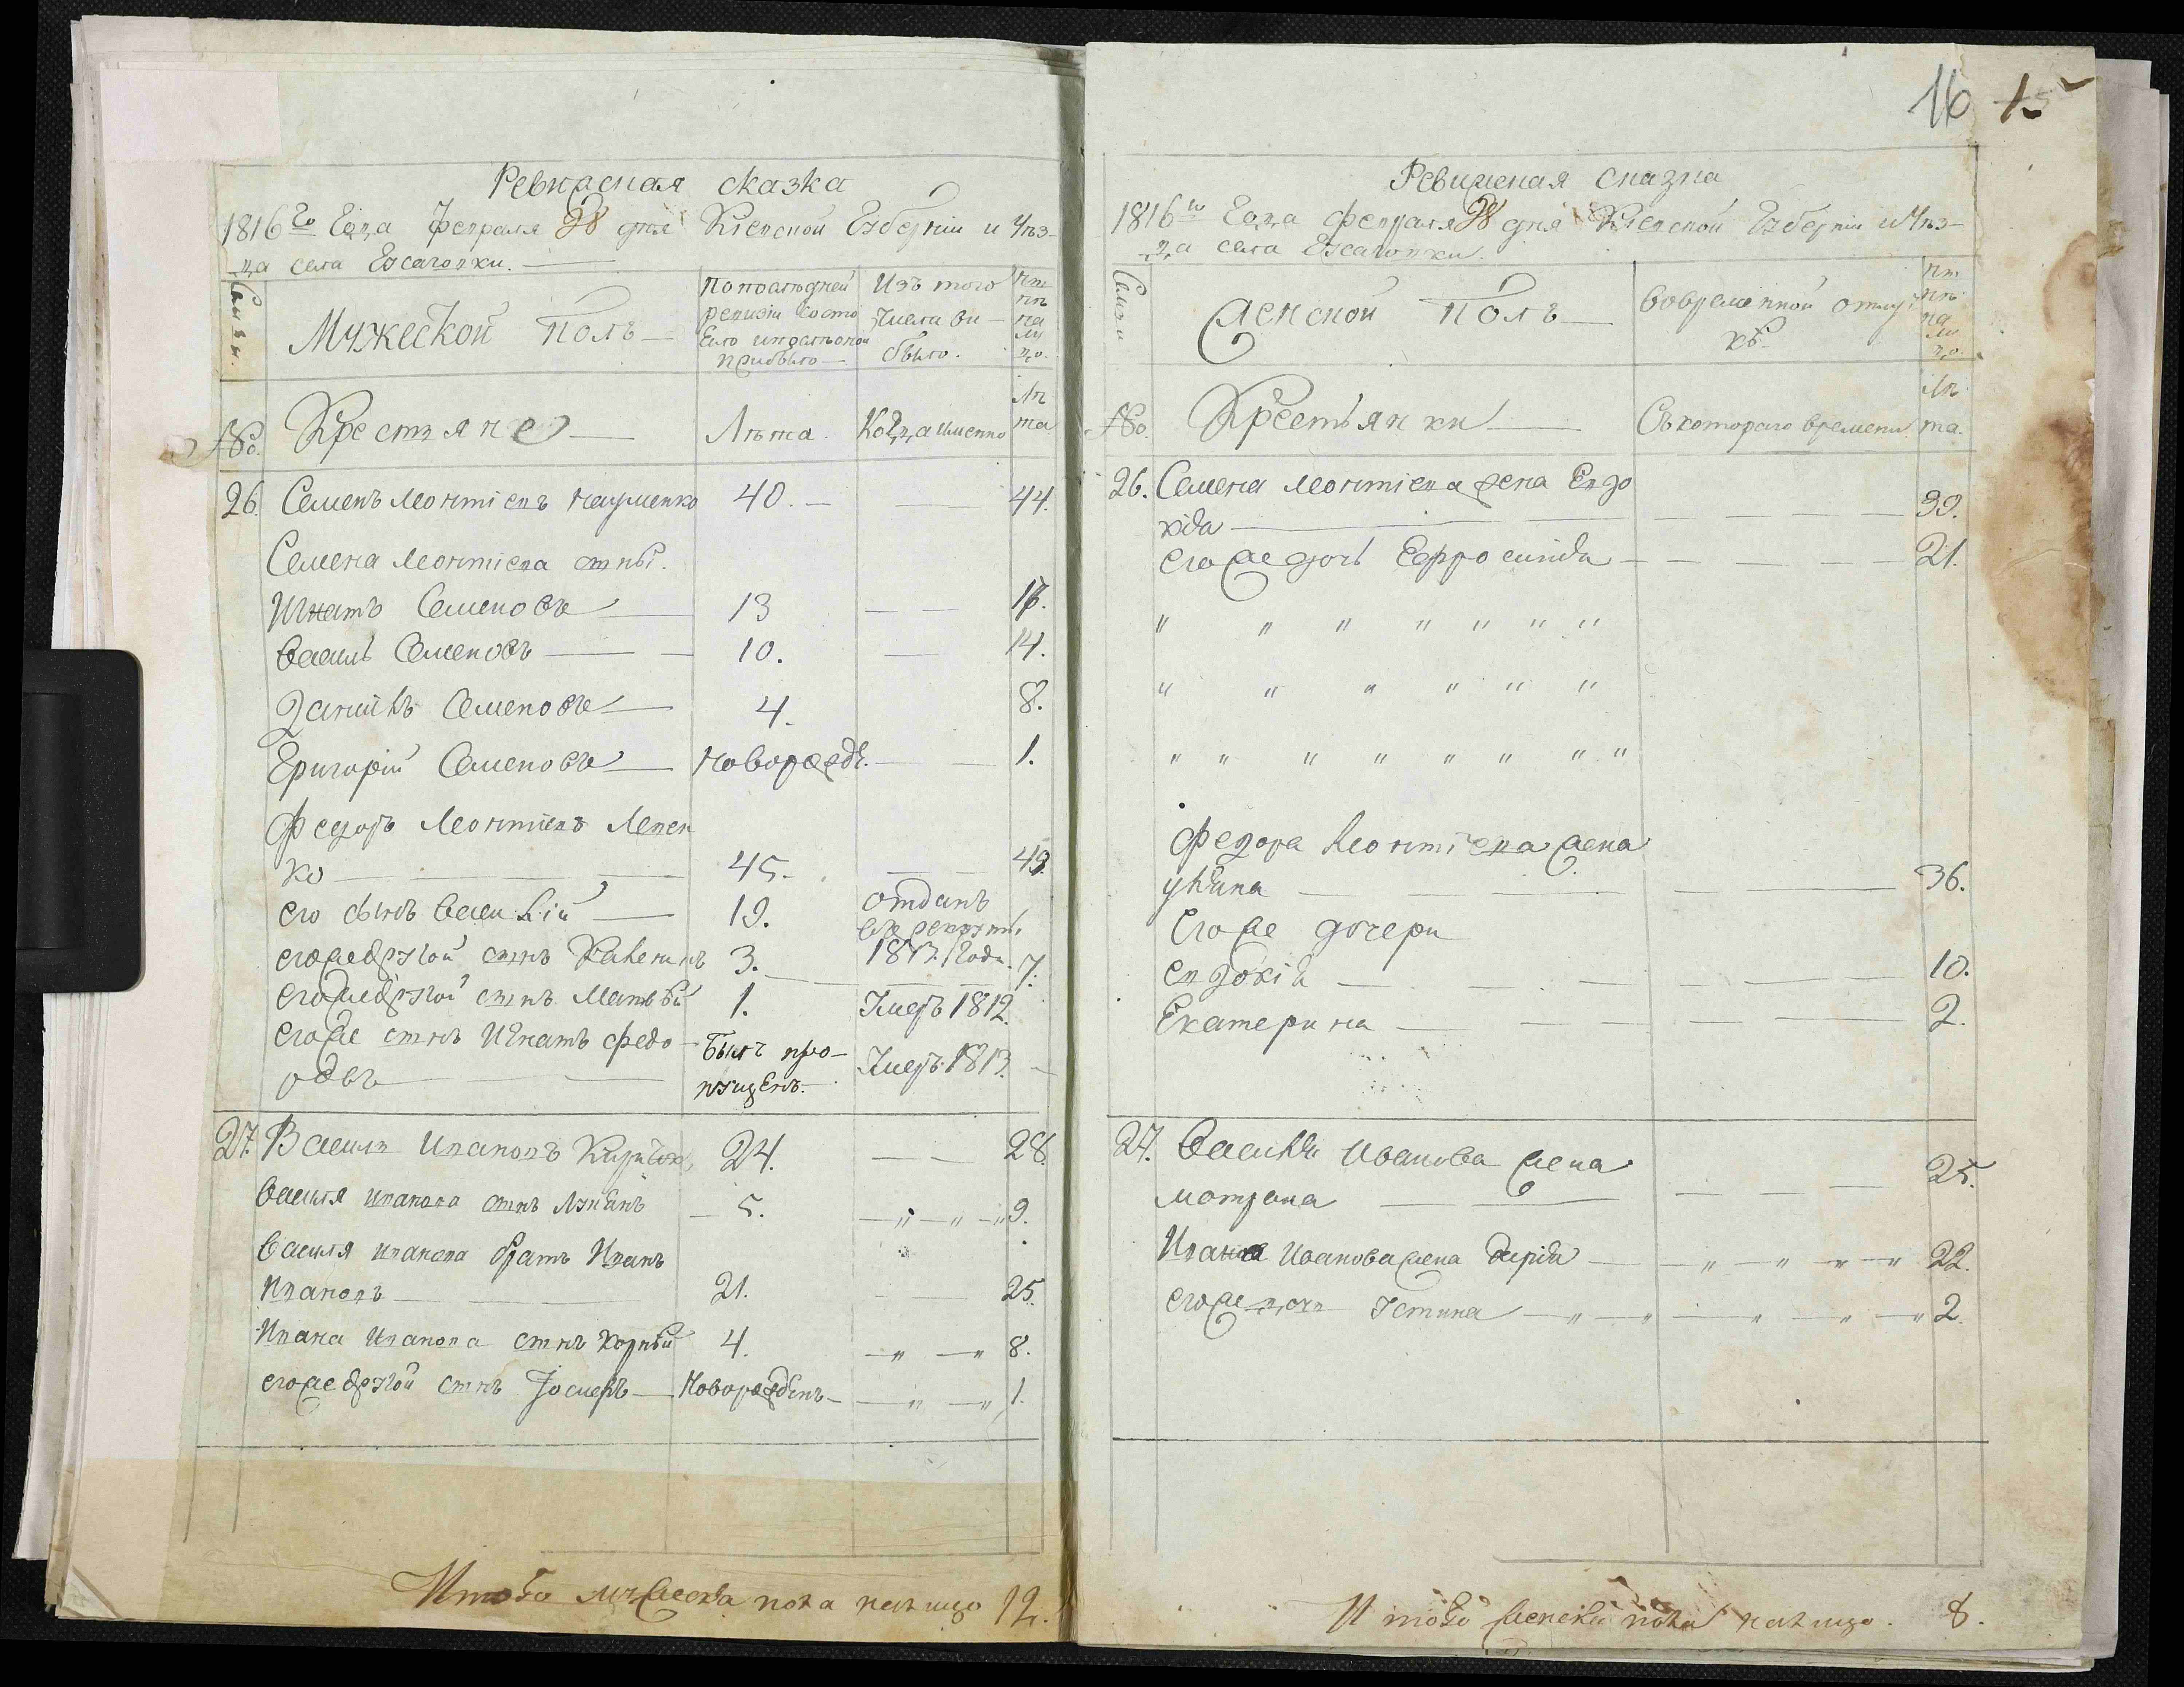 Ревизская сказка
1816го Года Февраля 28 дня Кіевской Губерніи и Уѣз-
да села Гусачовки.
Семьи.
Мужеской полъ
По последней ревизіи состо
Изъ того числа вы-
было.
на ли цо.
№о.
Крестьяне
Лѣта.
Когда именно
лѣ та
26. Семенъ Леонтіевъ Науменко 40. 44.
Семена Леонтіева сыны.
Игнатъ Семеновъ 13 17.
Василь Семеновъ 10. 14.
Данило Семеновъ 4. 8.
Григорій Семеновъ Новорожд. 1.
Федоръ Леонтіевъ
ко 45. 49.
его сынъ Василій 19. отданъ
въ рекруты
1813 Года.
его же другой сынъ 3. 7.
его же другой сынъ Матвѣй 1. Умеръ 1812.
его же сынъ Игнатъ Федо- Былъ про- Умеръ 1813.
ровъ пущенъ.
27. Василь Ивановъ 24. 28.
Василя Иванова сынъ Лукіанъ 5. 9.
Василя Иванова братъ Иванъ
Ивановъ 21. 25.
Ивана Иванова сынъ Корнѣй 4. 8.
его же другой сынъ Іосифъ Новорожденъ 1.
Итого мужеска пола налицо 12.
16 15
Ревизская сказка
1816го Года Февраля 28 дня Кіевской Губерніи и Уѣз-
да села Гусачовки.
Семьи
Женской полъ
Во временной отлуч
кѣ
на ли цо.
№о.
Крестьянки
Съ котораго времени
лѣ та.
26. Семена Леонтіева жена Евдо
кіа 39.
его же дочь Ефросиніа 21.
" " " " " " "
" " " " " "
" " " " " " " "
Федора Леонтіева жена
Уліана 36.
Его же дочери
Евдокіа 10.
Екатерина 2.
27. Василія Иванова жена
Матрона 25.
Ивана Иванова жена Даріа " " " " 22.
его же дочь Устина " " " " " 2.
Итого женска пола налицо. 8.